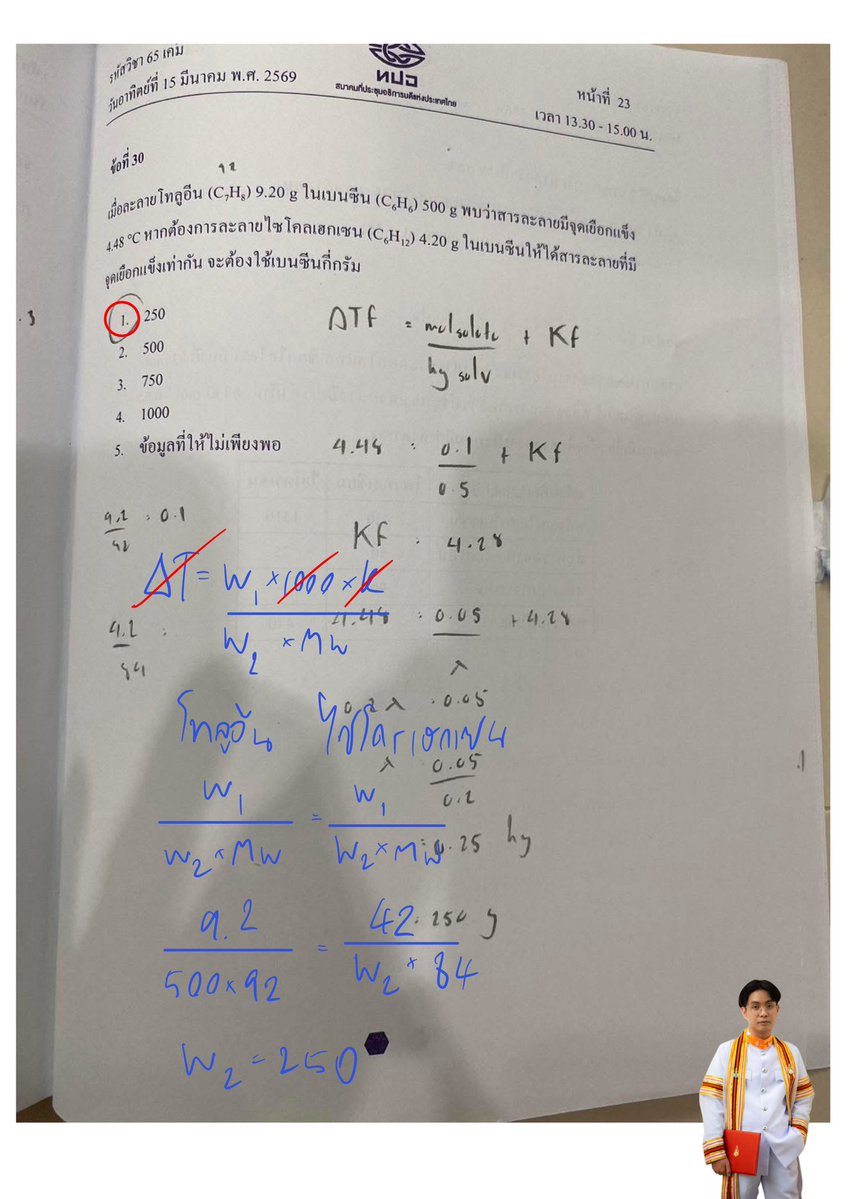 รหัสวิชา 65 เคมี
วันอาทิตย์ที่ 15 มีนาคม พ.ศ. 2569
ทปอ
สมาคมที่ประชุมอธิการบดีแห่งประเทศไทย
หน้าที่ 23
เวลา 13.30 - 15.00 น.
ข้อที่ 30
92
เมื่อละลายโทลูอีน (C₇H₈) 9.20 g ในเบนซีน (C₆H₆) 500 g พบว่าสารละลายมีจุดเยือกแข็ง
4.48 °C หากต้องการละลายไซโคลเฮกเซน (C₆H₁₂) 4.20 g ในเบนซีนให้ได้สารละลายที่มี
จุดเยือกแข็งเท่ากัน จะต้องใช้เบนซีนกี่กรัม
1. 250
2. 500
3. 750
4. 1000
5. ข้อมูลที่ให้ไม่เพียงพอ
ΔTf = mol solute + Kf
kg solv
4.48 : 0.1 + Kf
0.5
9.2 : 0.1
92
Kf : 4.28
ΔT = W₁ × 1000 × K
W₂ × MW
4.2 :
84
4.48 : 0.05 + 4.28
λ
0.2 λ : 0.05
โทลูอีน ไซโคลเฮกเซน
λ 0.05
0.2
W₁ = W₁
W₂ × MW W₂ × MW
0.25 kg
: 250 g
9.2 = 42
500 × 92 W₂ × 84
W₂ = 250